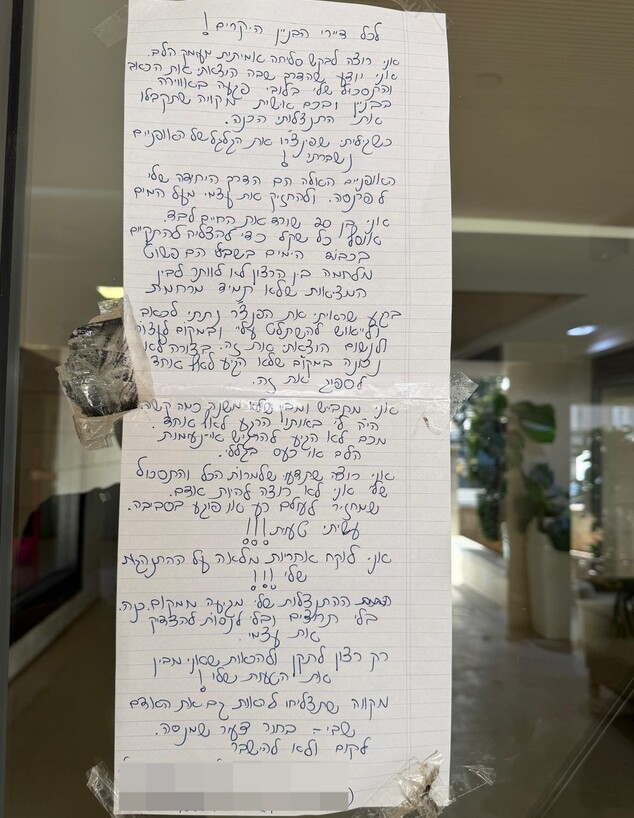 לכל דיירי הבניין היקרים!
אני רוצה לבקש סליחה אמיתית מעומק הלב.
אני יודע שהדרך שבה הוצאתי את הכאב
והתסכול שלי בלובי פגעה באווירה
בבניין ובכם אישית מקווה שתקבלו
את התנצלותי הכנה.
כשגיליתי שפינצ׳רו את הגלגל של האופניים
נשברתי!
האופניים האלה הם הדרך היחידה שלי
לפרנסה. ולהחזיק את עצמי מעל המים
אני בן 20 שורד את החיים לבד.
אוסף כל שקל כדי להצליח להתקיים
בכבוד הימים בשבילי הם פשוט
מלחמה בין הרצון לא לוותר לבין
המציאות שלא תמיד מרחמת
ברגע שראיתי את הפנצ׳ר נתתי לכאב
ולייאוש להשתלט עליי ובמקום לעצור
ולנשום הוצאתי את זה. בצורה לא
נכונה במקום שלא הגיע לאף אחד
לספוג את זה.
אני מתבייש ומבין שלא משנה כמה קשה.
היה לי באותו הרגע לאף אחד.
מכם לא הגיע להרגיש אי-נעימות
הלב או כעס בגללי.
אני רוצה שתדעו שלמרות הכל והתסכול
שלי אני לא רוצה להיות אדם.
שמחזיר לעולם רע או פוגע בסביבה.
עשיתי טעות!!!
אני לוקח אחריות מלאה על ההתנהגות
שלי!!!
ההתנצלות שלי מגיעה ממקום. כנה.
בלי תרוצים ובלי לנסות להצדיק
את עצמי.
רק רצון לתקן ולהראות שאני מבין
את הטעות שלי!
מקווה שתצליחו לראות גם את האדם
שבי - בחור צעיר שמנסה.
לקום ולא להישבר